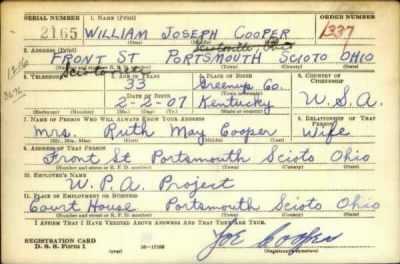 SERIAL NUMBER 1. NAME (Print) ORDER NUMBER
2165 WILLIAM JOSEPH COOPER 1337
(First) (Middle) (Last)
2. ADDRESS (Print) Sciotoville, Ohio
FRONT ST PORTSMOUTH SCIOTO OHIO
(Number and street or R. F. D. number) (Town) (County) (State)
3. TELEPHONE 4. AGE IN YEARS 5. PLACE OF BIRTH 6. COUNTRY OF CITIZENSHIP
33 Greenup Co.
DATE OF BIRTH (Town or county)
2-2-07 Kentucky U.S.A.
(Exchange) (Number) (Mo.) (Day) (Yr.) (State or country)
7. NAME OF PERSON WHO WILL ALWAYS KNOW YOUR ADDRESS 8. RELATIONSHIP OF THAT PERSON
Mrs. Ruth May Cooper Wife
(Mr., Mrs., Miss) (First) (Middle) (Last)
9. ADDRESS OF THAT PERSON
Front St Portsmouth Scioto Ohio
(Number and street or R. F. D. number) (Town) (County) (State)
10. EMPLOYER'S NAME
W.P.A. Project
11. PLACE OF EMPLOYMENT OR BUSINESS
Court House Portsmouth Scioto Ohio
(Number and street or R. F. D. number) (Town) (County) (State)
I AFFIRM THAT I HAVE VERIFIED ABOVE ANSWERS AND THAT THEY ARE TRUE.
REGISTRATION CARD Joe Cooper
D. S. S. Form 1 (Registrant's signature)